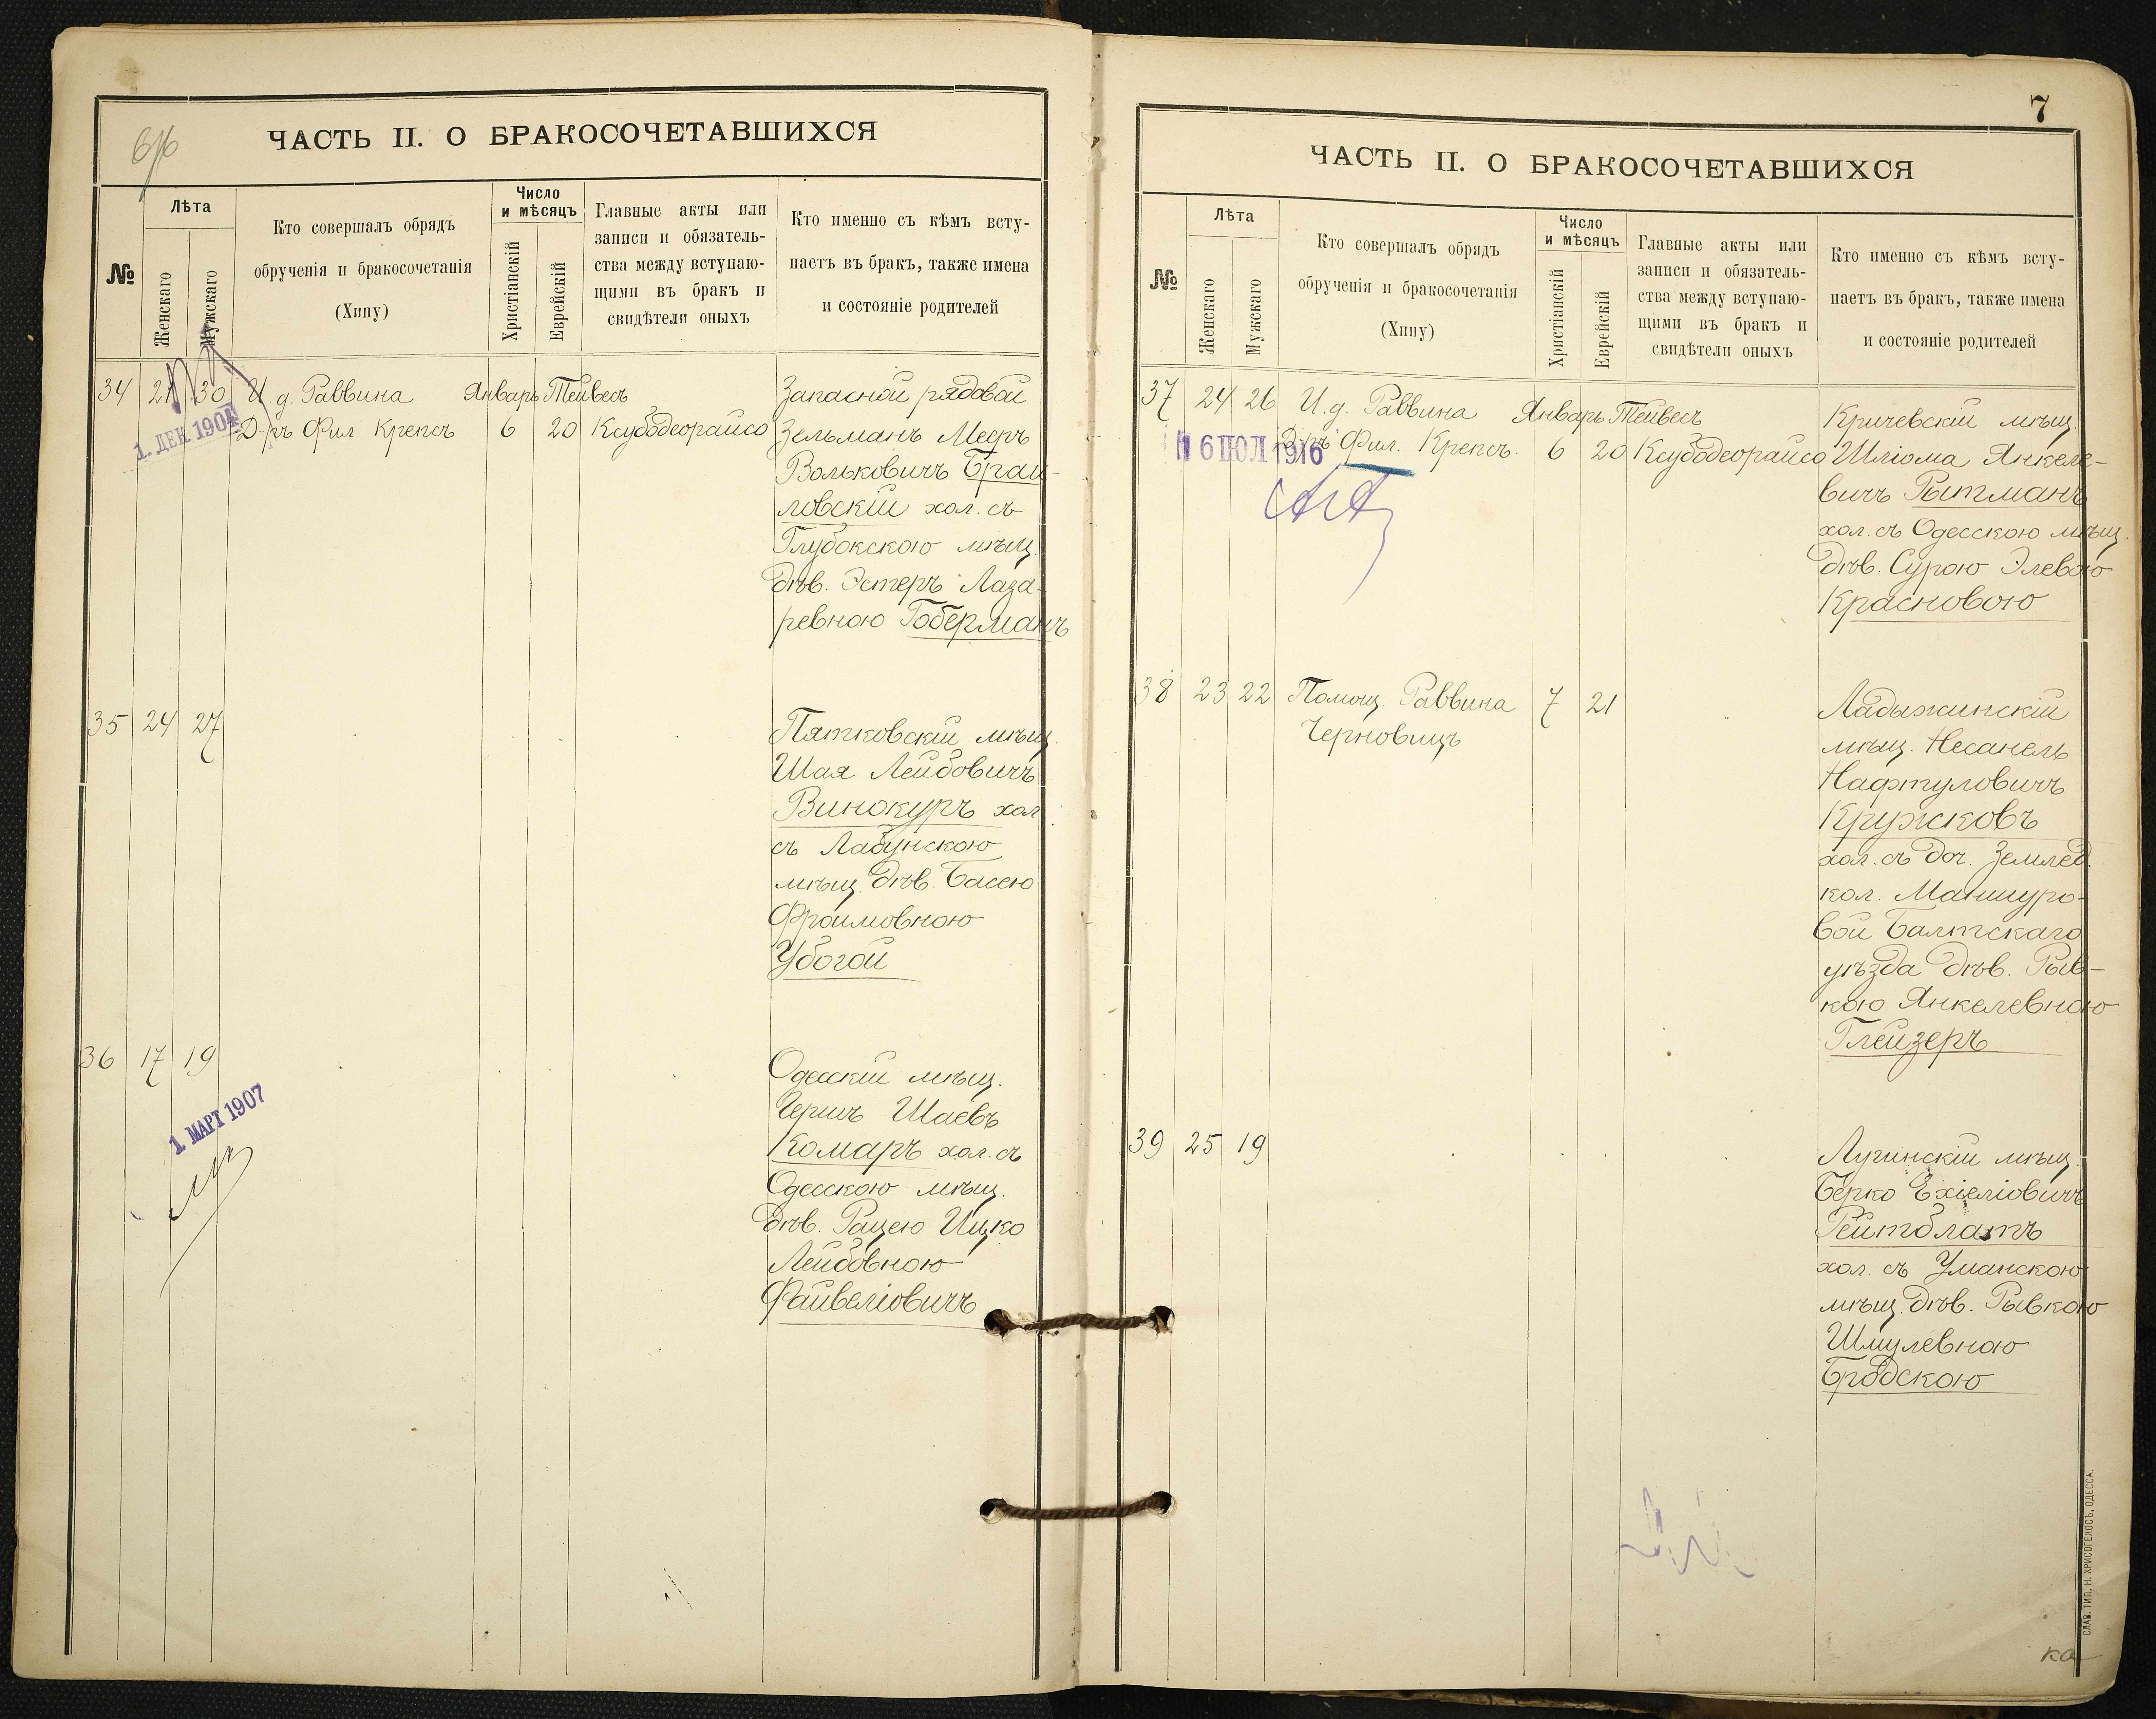 ЧАСТЬ II. О БРАКОСОЧЕТАВШИХСЯ
№
Лѣта
Женскаго
Мужскаго
Кто совершалъ обрядъ
обрученія и бракосочетанія
(Хипу)
Число
и мѣсяцъ
Христіанскій
Еврейскій
Главные акты или
записи и обязатель-
ства между вступаю-
щими въ бракъ и
свидѣтели оныхъ
Кто именно съ кѣмъ всту-
паетъ въ бракъ, также имена
и состояніе родителей
34 21 30 И. д. Раввина Январь Тейвесъ
Д-ръ Фил. Крепсъ 6 20 Ксубодеорайсо
1. ДЕК 1904
Запасной рядовой
Зельманъ Мееръ
Вольковичъ Браи-
ловскій хол. съ
Глубокскою мѣщ.
дѣв. Эстеръ Лаза-
ревною Гоберманъ
35 24 27
Пятковскій мѣщ.
Шая Лейбовичъ
Винокуръ хол.
съ Лабунскою
мѣщ. дѣв. Басею
Фроимовною
Убогой
36 17 19
1. МАРТ 1907
Одесскій мѣщ.
Гершъ Шаевъ
Комаръ хол. съ
Одесскою мѣщ.
дѣв. Рацею Ицко
Лейбовною
Файвеліовичъ
7
ЧАСТЬ II. О БРАКОСОЧЕТАВШИХСЯ
№
Лѣта
Женскаго
Мужскаго
Кто совершалъ обрядъ
обрученія и бракосочетанія
(Хипу)
Число
и мѣсяцъ
Христіанскій
Еврейскій
Главные акты или
записи и обязатель-
ства между вступаю-
щими въ бракъ и
свидѣтели оныхъ
Кто именно съ кѣмъ всту-
паетъ въ бракъ, также имена
и состояніе родителей
37 24 26 И. д. Раввина Январь Тейвесъ
Д-ръ Фил. Крепсъ 6 20 Ксубодеорайсо
6 ІЮЛ 1916
Кричевскій мѣщ.
Шліома Янкеле-
вичъ Рытманъ
хол. съ Одесскою мѣщ.
дѣв. Сурою Элевою
Красновою
38 23 22 Помощ. Раввина 7 21
Черновицъ
Ладыжинскій
мѣщ. Несанель
Нафтуловичъ
Кружковъ
хол. съ доч. Землед.
кол. Маншуро-
вой Балтскаго
уѣзда дѣв. Рыв-
кою Янкелевною
Глейзеръ
39 25 19
Лугинскій мѣщ.
Берко Ехіеліовичъ
Рейтблатъ
хол. съ Уманскою
мѣщ. дѣв. Рывкою
Шмулевною
Бродскою
СЛАВ. ТИП. Н. ХРИСОГЕЛОСЪ, ОДЕССА.
ка